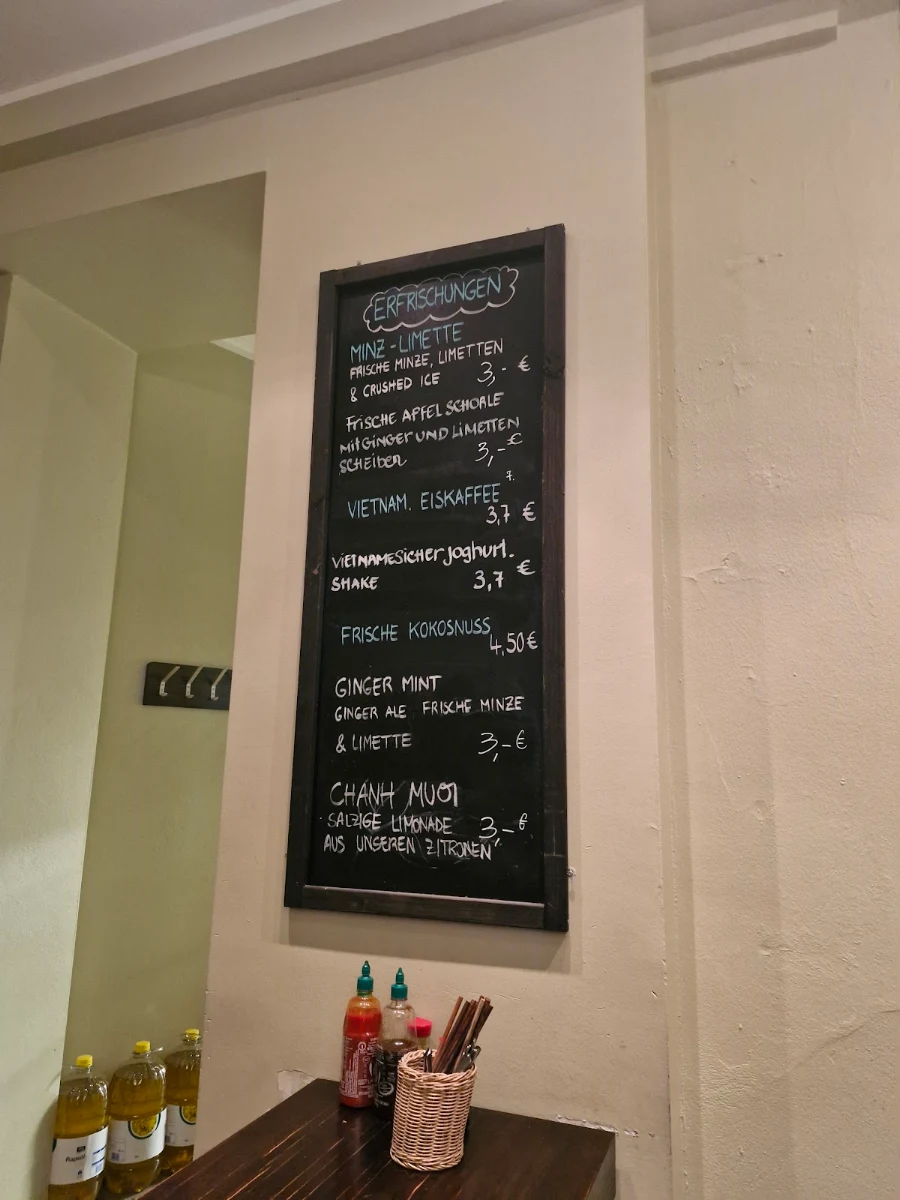 ERFRISCHUNGEN
MINZ-LIMETTE
FRISCHE MINZE, LIMETTEN
& CRUSHED ICE 3,- €
FRISCHE APFELSCHORLE
MIT GINGER UND LIMETTEN
SCHEIBEN 3,- €
VIETNAM. EISKAFFEE 7.
3,7 €
VIETNAMESICHER Joghurt.
SHAKE 3,7 €
FRISCHE KOKOSNUSS
4,50 €
GINGER MINT
GINGER ALE FRISCHE MINZE
& LIMETTE 3,- €
CHANH MUOI
SALZIGE LIMONADE 3,- €
AUS UNSEREN ZITRONEN
Rapsöl